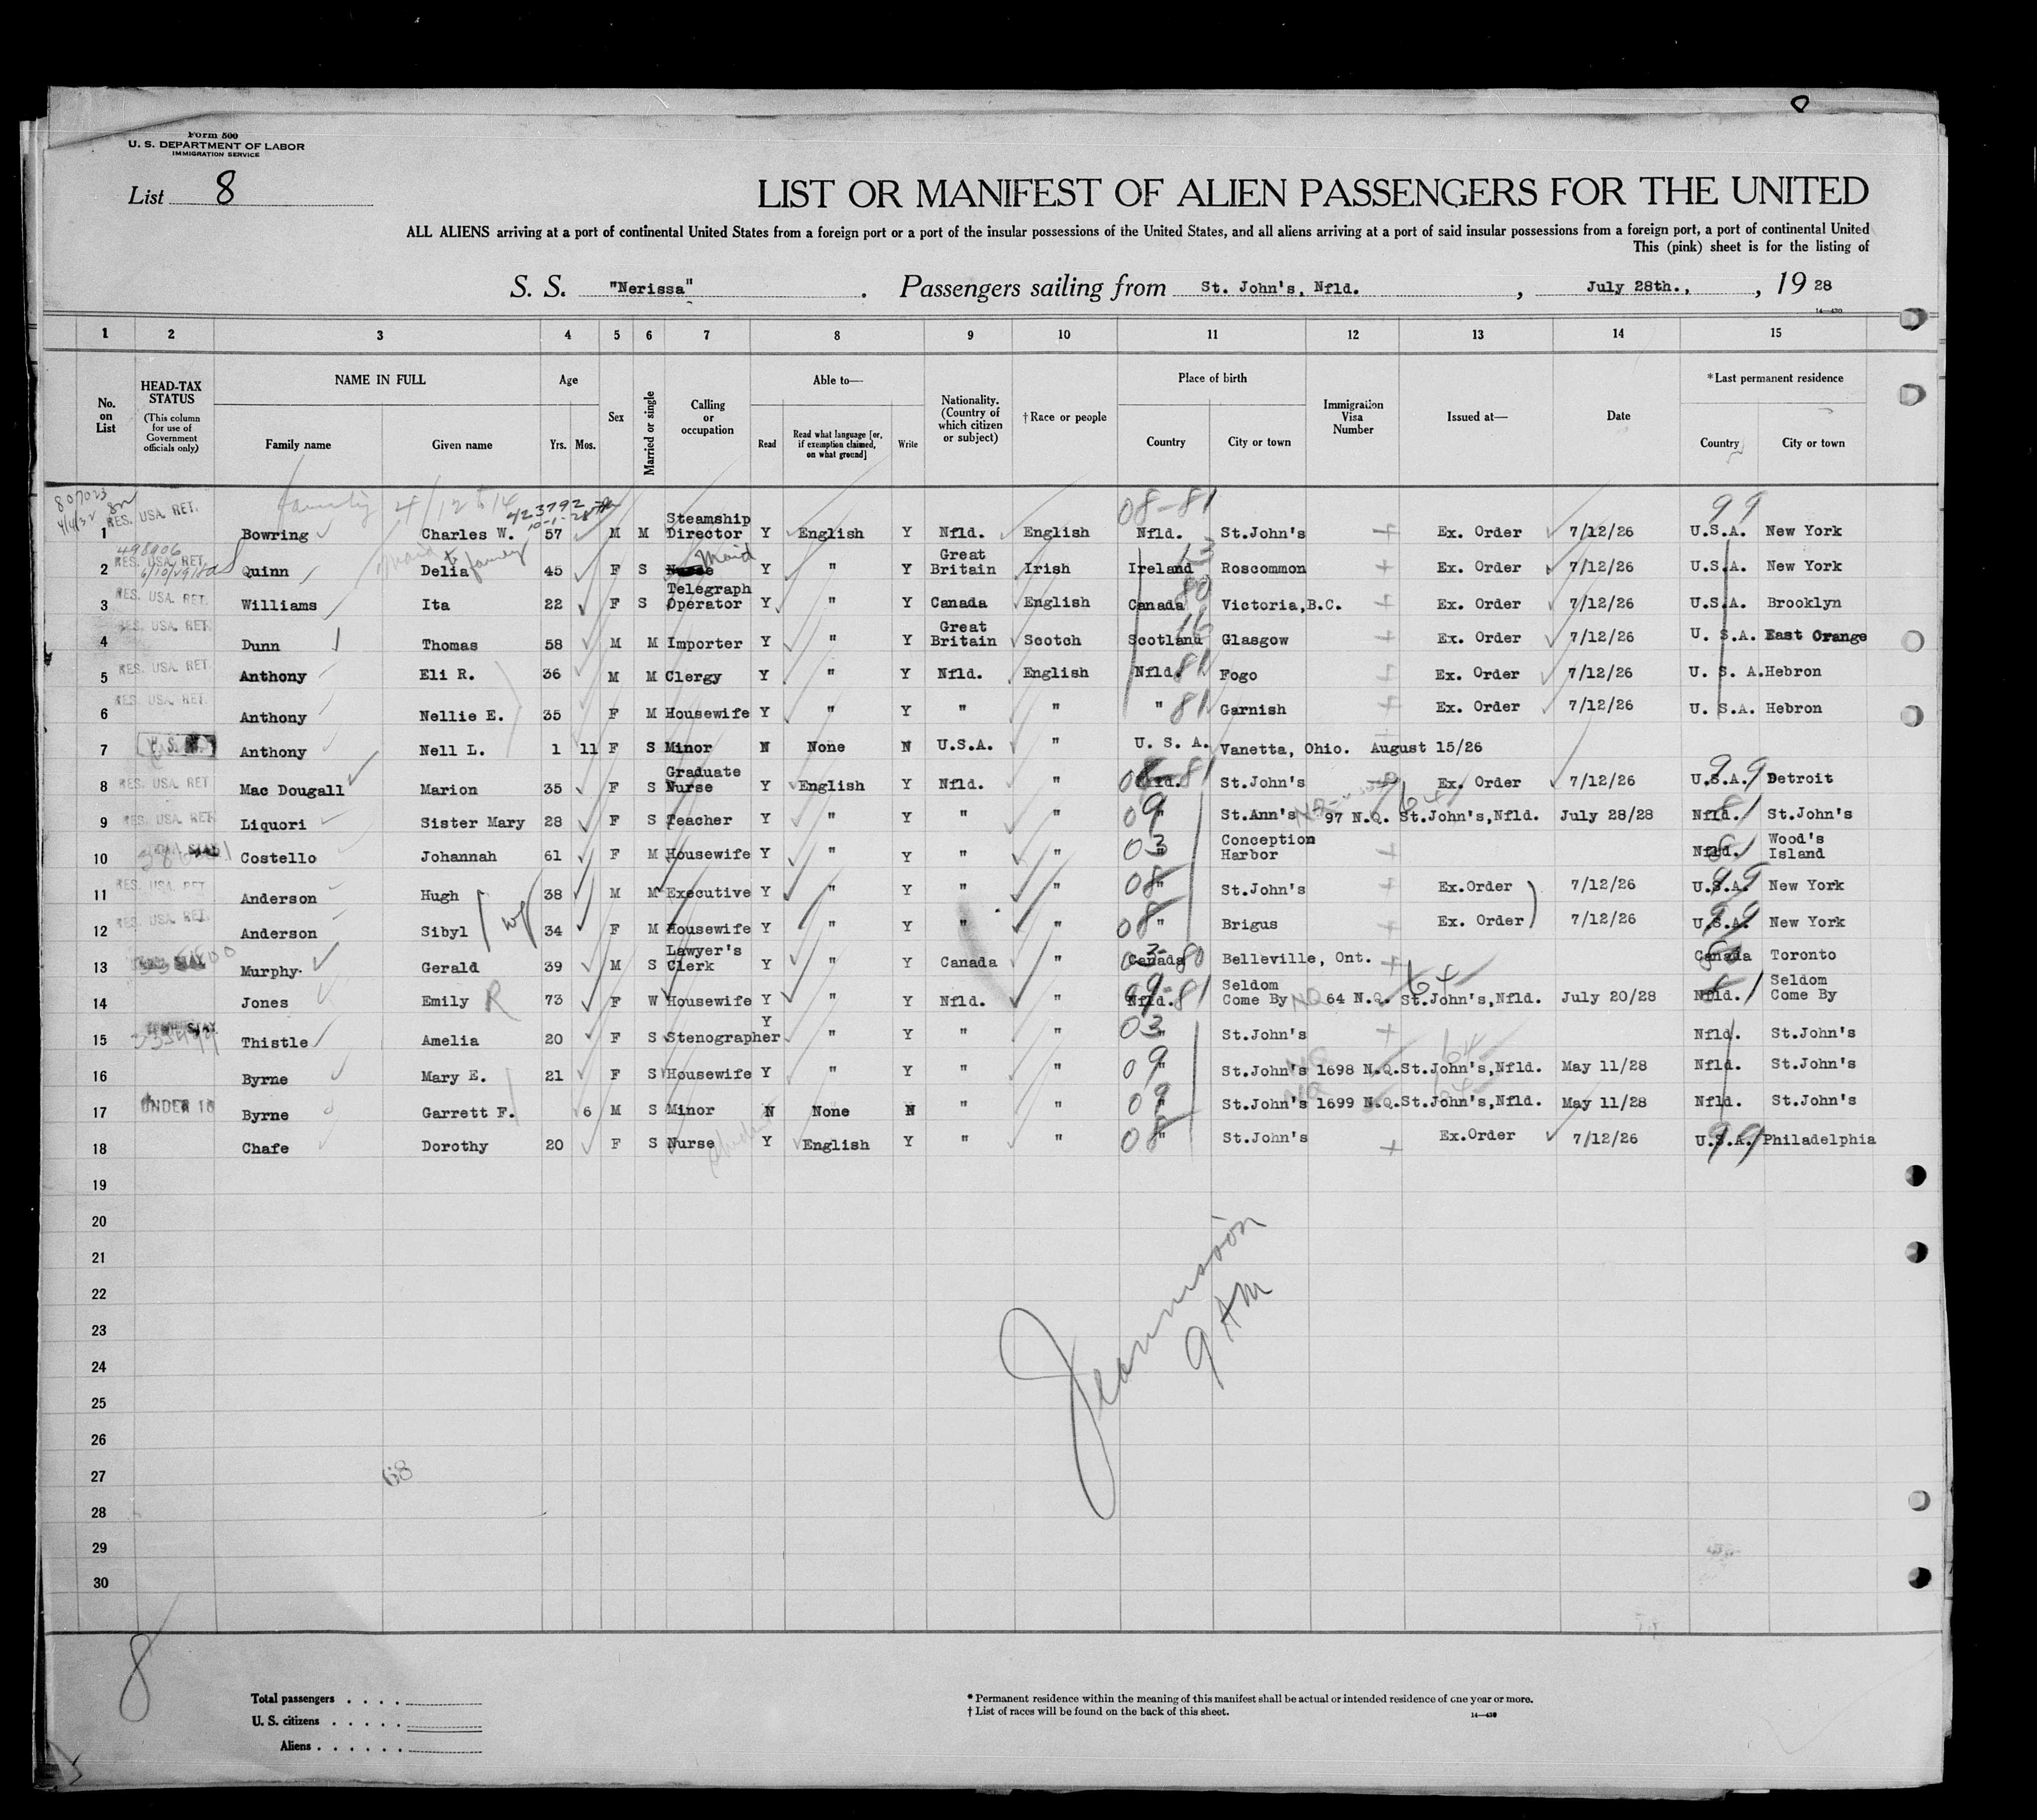 8
Form 500
U. S. DEPARTMENT OF LABOR
IMMIGRATION SERVICE
List 8
LIST OR MANIFEST OF ALIEN PASSENGERS FOR THE UNITED
ALL ALIENS arriving at a port of continental United States from a foreign port or a port of the insular possessions of the United States, and all aliens arriving at a port of said insular possessions from a foreign port, a port of continental United
This (pink) sheet is for the listing of
S. S. "Nerissa" . Passengers sailing from St. John's, Nfld. , July 28th., , 19 28
14—430
1 2 3 4 5 6 7 8 9 10 11 12 13 14 15
No. on List HEAD-TAX STATUS (This column for use of Government officials only) NAME IN FULL Family name Given name Age Yrs. Mos. Sex Married or single Calling or occupation Able to— Read Read what language [or, if exemption claimed, on what ground] Write Nationality. (Country of which citizen or subject) † Race or people Place of birth Country City or town Immigration Visa Number Issued at— Date * Last permanent residence Country City or town
807023 4/4/32
family 4/12 & 14 423792 10-1-28 08-81 99
1 RES. USA. RET. Bowring Charles W. 57 M M Steamship Director Y English Y Nfld. English Nfld. St.John's Ex. Order 7/12/26 U.S.A. New York
498906 6/10/29 maid to family Maid 13
2 RES. USA. RET. Quinn Delia 45 F S Nurse Y " Y Great Britain Irish Ireland Roscommon Ex. Order 7/12/26 U.S.A. New York
3 RES. USA. RET. Williams Ita 22 F S Telegraph Operator Y " Y Canada English Canada 80 Victoria,B.C. Ex. Order 7/12/26 U.S.A. Brooklyn
4 RES. USA. RET. Dunn Thomas 58 M M Importer Y " Y Great Britain Scotch Scotland 16 Glasgow Ex. Order 7/12/26 U. S.A. East Orange
5 RES. USA. RET. Anthony Eli R. 36 M M Clergy Y " Y Nfld. English Nfld. 81 Fogo Ex. Order 7/12/26 U. S. A. Hebron
6 RES. USA. RET. Anthony Nellie E. 35 F M Housewife Y " Y " " " 81 Garnish Ex. Order 7/12/26 U. S.A. Hebron
7 Anthony Nell L. 1 11 F S Minor N None N U.S.A. " U. S. A. Vanetta, Ohio. August 15/26
8 RES. USA. RET. Mac Dougall Marion 35 F S Graduate Nurse Y English Y Nfld. " Nfld. 08-81 St.John's Ex. Order 7/12/26 U.S.A. 99 Detroit
9 RES. USA. RET. Liquori Sister Mary 28 F S Teacher Y " Y " " " 09 St.Ann's 97 N.Q. St.John's,Nfld. 64 July 28/28 Nfld. 81 St.John's
10 Costello Johannah 61 F M Housewife Y " Y " " " 03 Conception Harbor Nfld. 81 Wood's Island
11 RES. USA. RET. Anderson Hugh 38 M M Executive Y " Y " " " 08 St.John's Ex.Order 7/12/26 U.S.A. 99 New York
12 RES. USA. RET. Anderson Sibyl wf 34 F M Housewife Y " Y " " " 08 Brigus Ex. Order 7/12/26 U.S.A. 99 New York
13 Murphy. Gerald 39 M S Lawyer's Clerk Y " Y Canada " Canada 03-80 Belleville, Ont. Canada 80 Toronto
14 Jones Emily R 73 F W Housewife Y " Y Nfld. " Nfld. 09-81 Seldom Come By NQ 64 N.Q. St.John's,Nfld. 64 July 20/28 Nfld. 81 Seldom Come By
15 Thistle Amelia 20 F S Stenographer Y " Y " " " 03 St.John's Nfld. St.John's
16 Byrne Mary E. 21 F S Housewife Y " Y " " " 09 St.John's NQ 1698 N.Q. St.John's,Nfld. 64 May 11/28 Nfld. St.John's
17 UNDER 16 Byrne Garrett F. 6 M S Minor N None N " " " 09 St.John's NQ 1699 N.Q. St.John's,Nfld. 64 May 11/28 Nfld. St.John's
18 Chafe Dorothy 20 F S Nurse Y English Y " " " 08 St.John's Ex.Order 7/12/26 U.S.A. 99 Philadelphia
19
20
21
22
23
24
25
26
27
28
29
30
9 AM
68
8
Total passengers . . . .
U. S. citizens . . . . .
Aliens . . . . . .
* Permanent residence within the meaning of this manifest shall be actual or intended residence of one year or more.
† List of races will be found on the back of this sheet.
14—430